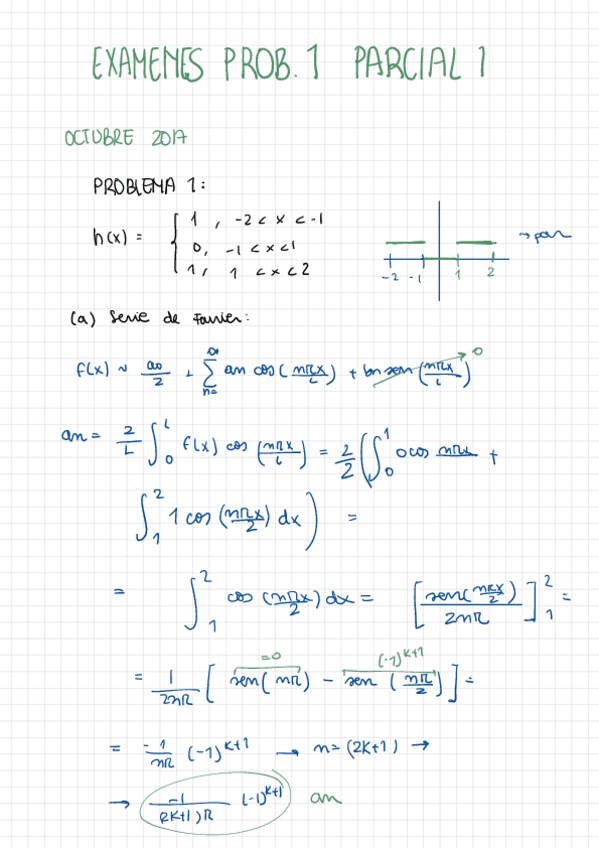 EXAMENES PROB. 1 PARCIAL 1
OCTUBRE 2017
PROBLEMA 1:
h(x) = { 1, -2 < x < -1
0, -1 < x < 1
1, 1 < x < 2
→ par
-2 -1 1 2
(a) Serie de Fourier:
f(x) ~ a0/2 + ∑_{n=}^{∞} an cos(nπx/L) + bn sen(nπx/L) → 0
an = 2/L ∫_0^L f(x) cos(nπx/L) = 2/2 (∫_0^1 0 cos nπx +
∫_1^2 1 cos(nπx/2) dx) =
= ∫_1^2 cos(nπx/2) dx = [sen(nπx/2)/2nπ]_1^2 =
=0 (-1)^{k+1}
= 1/2nπ [sen(nπ) - sen(nπ/2)] =
= -1/nπ (-1)^{k+1} → n=(2k+1) →
→ -1/(2k+1)π (-1)^{k+1} an